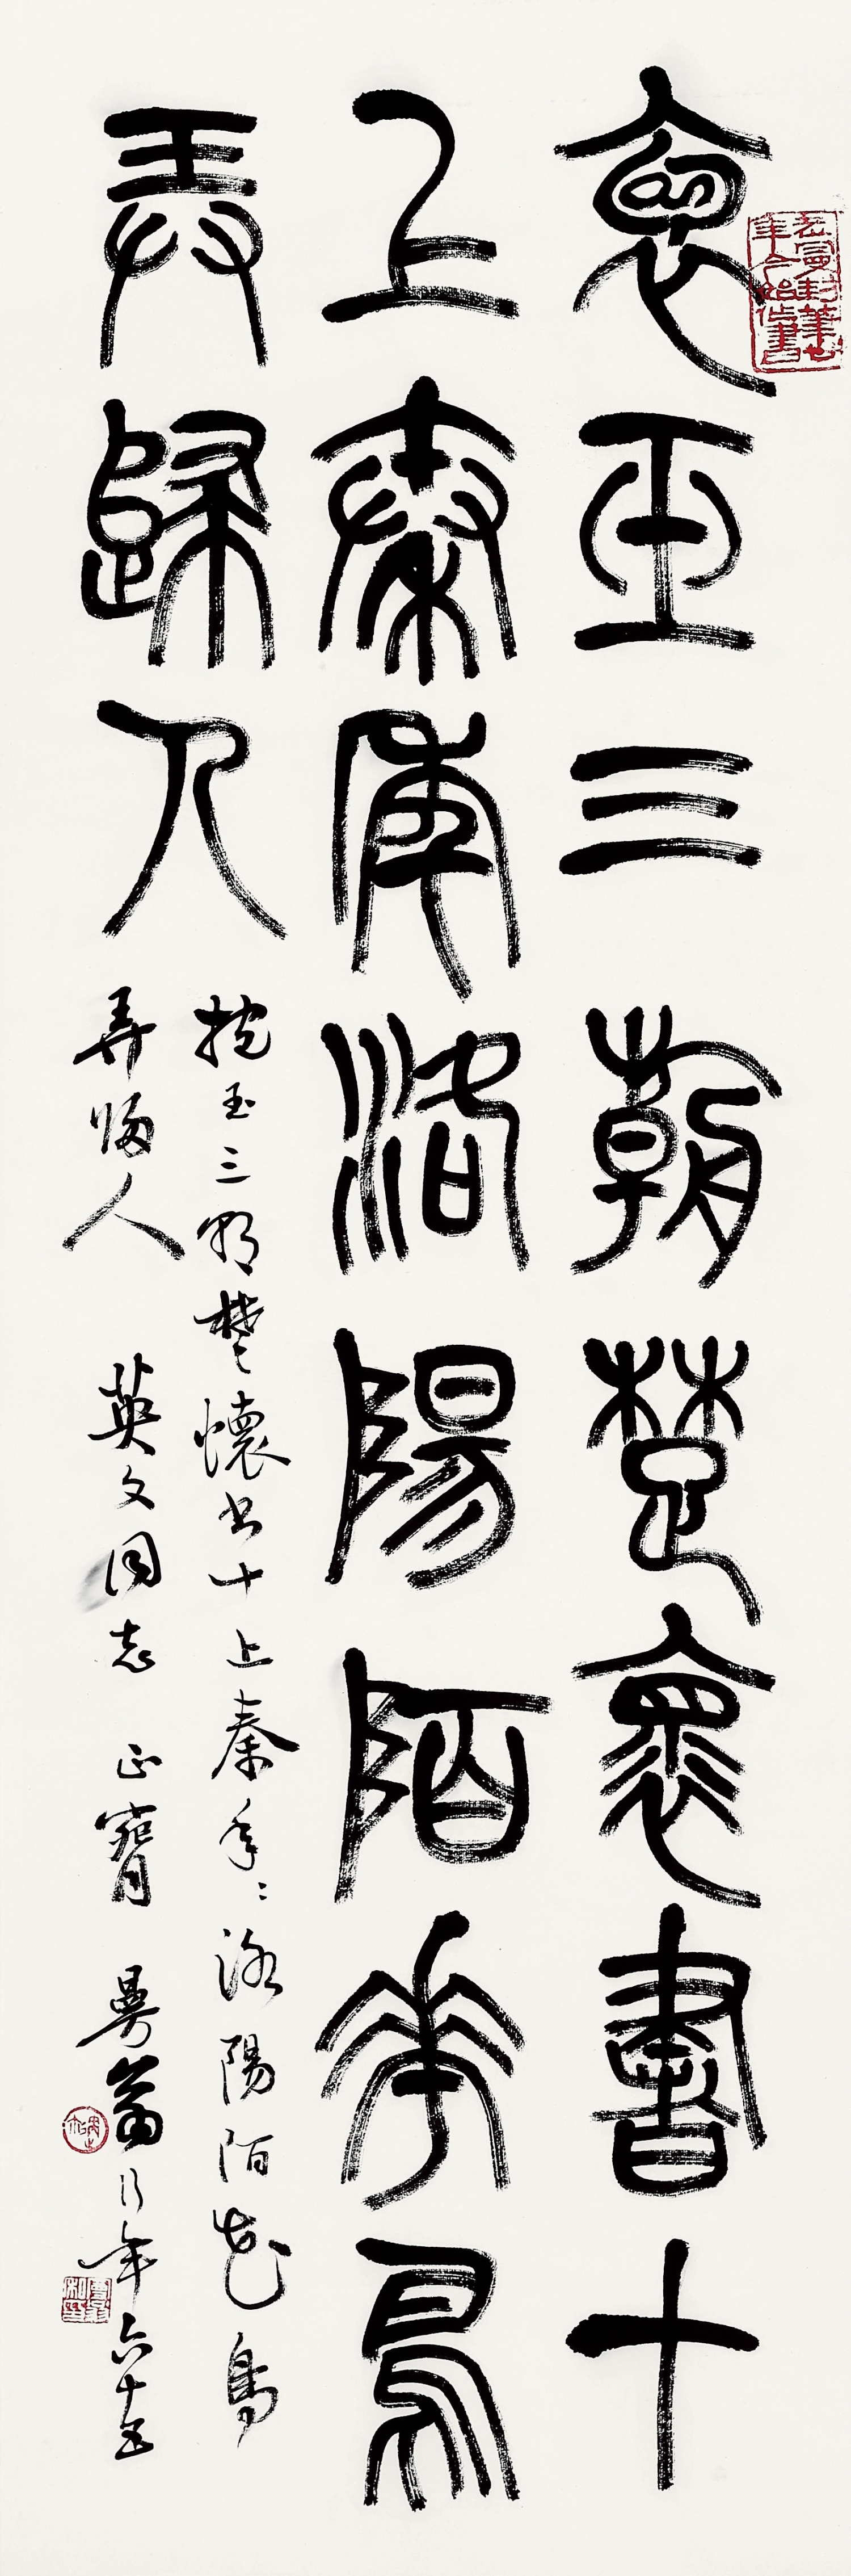 袌玉三朝楚褱書十
上秦年洛陽陌華鳥
弄歸人
抱玉三朝楚懷書十上秦年〻洛陽陌花鳥
弄歸人 英文同志 正 曼翁行年六十五